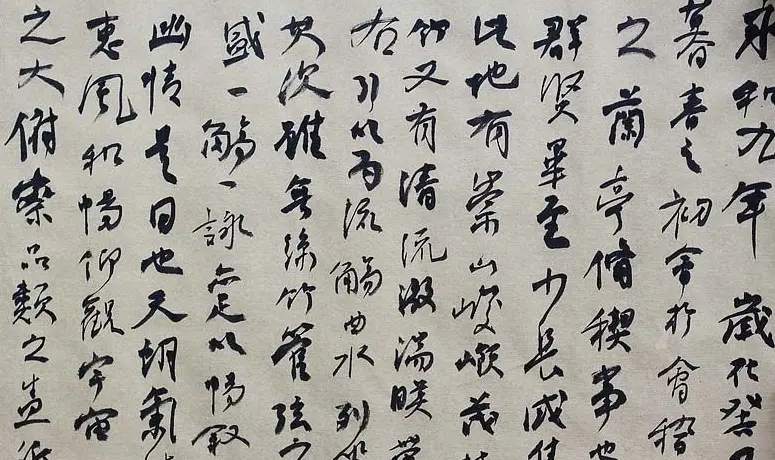 永和九年歲在癸丑
暮春之初會於會稽
之蘭亭脩稧事也
群賢畢至少長咸集
此地有崇山峻嶺茂林
竹又有清流激湍暎帶
右引以為流觴曲水列坐
其次雖無絲竹管弦之
盛一觴一詠亦足以暢叙
幽情是日也天朗氣
惠風和暢仰觀宇宙
之大俯察品類之盛所